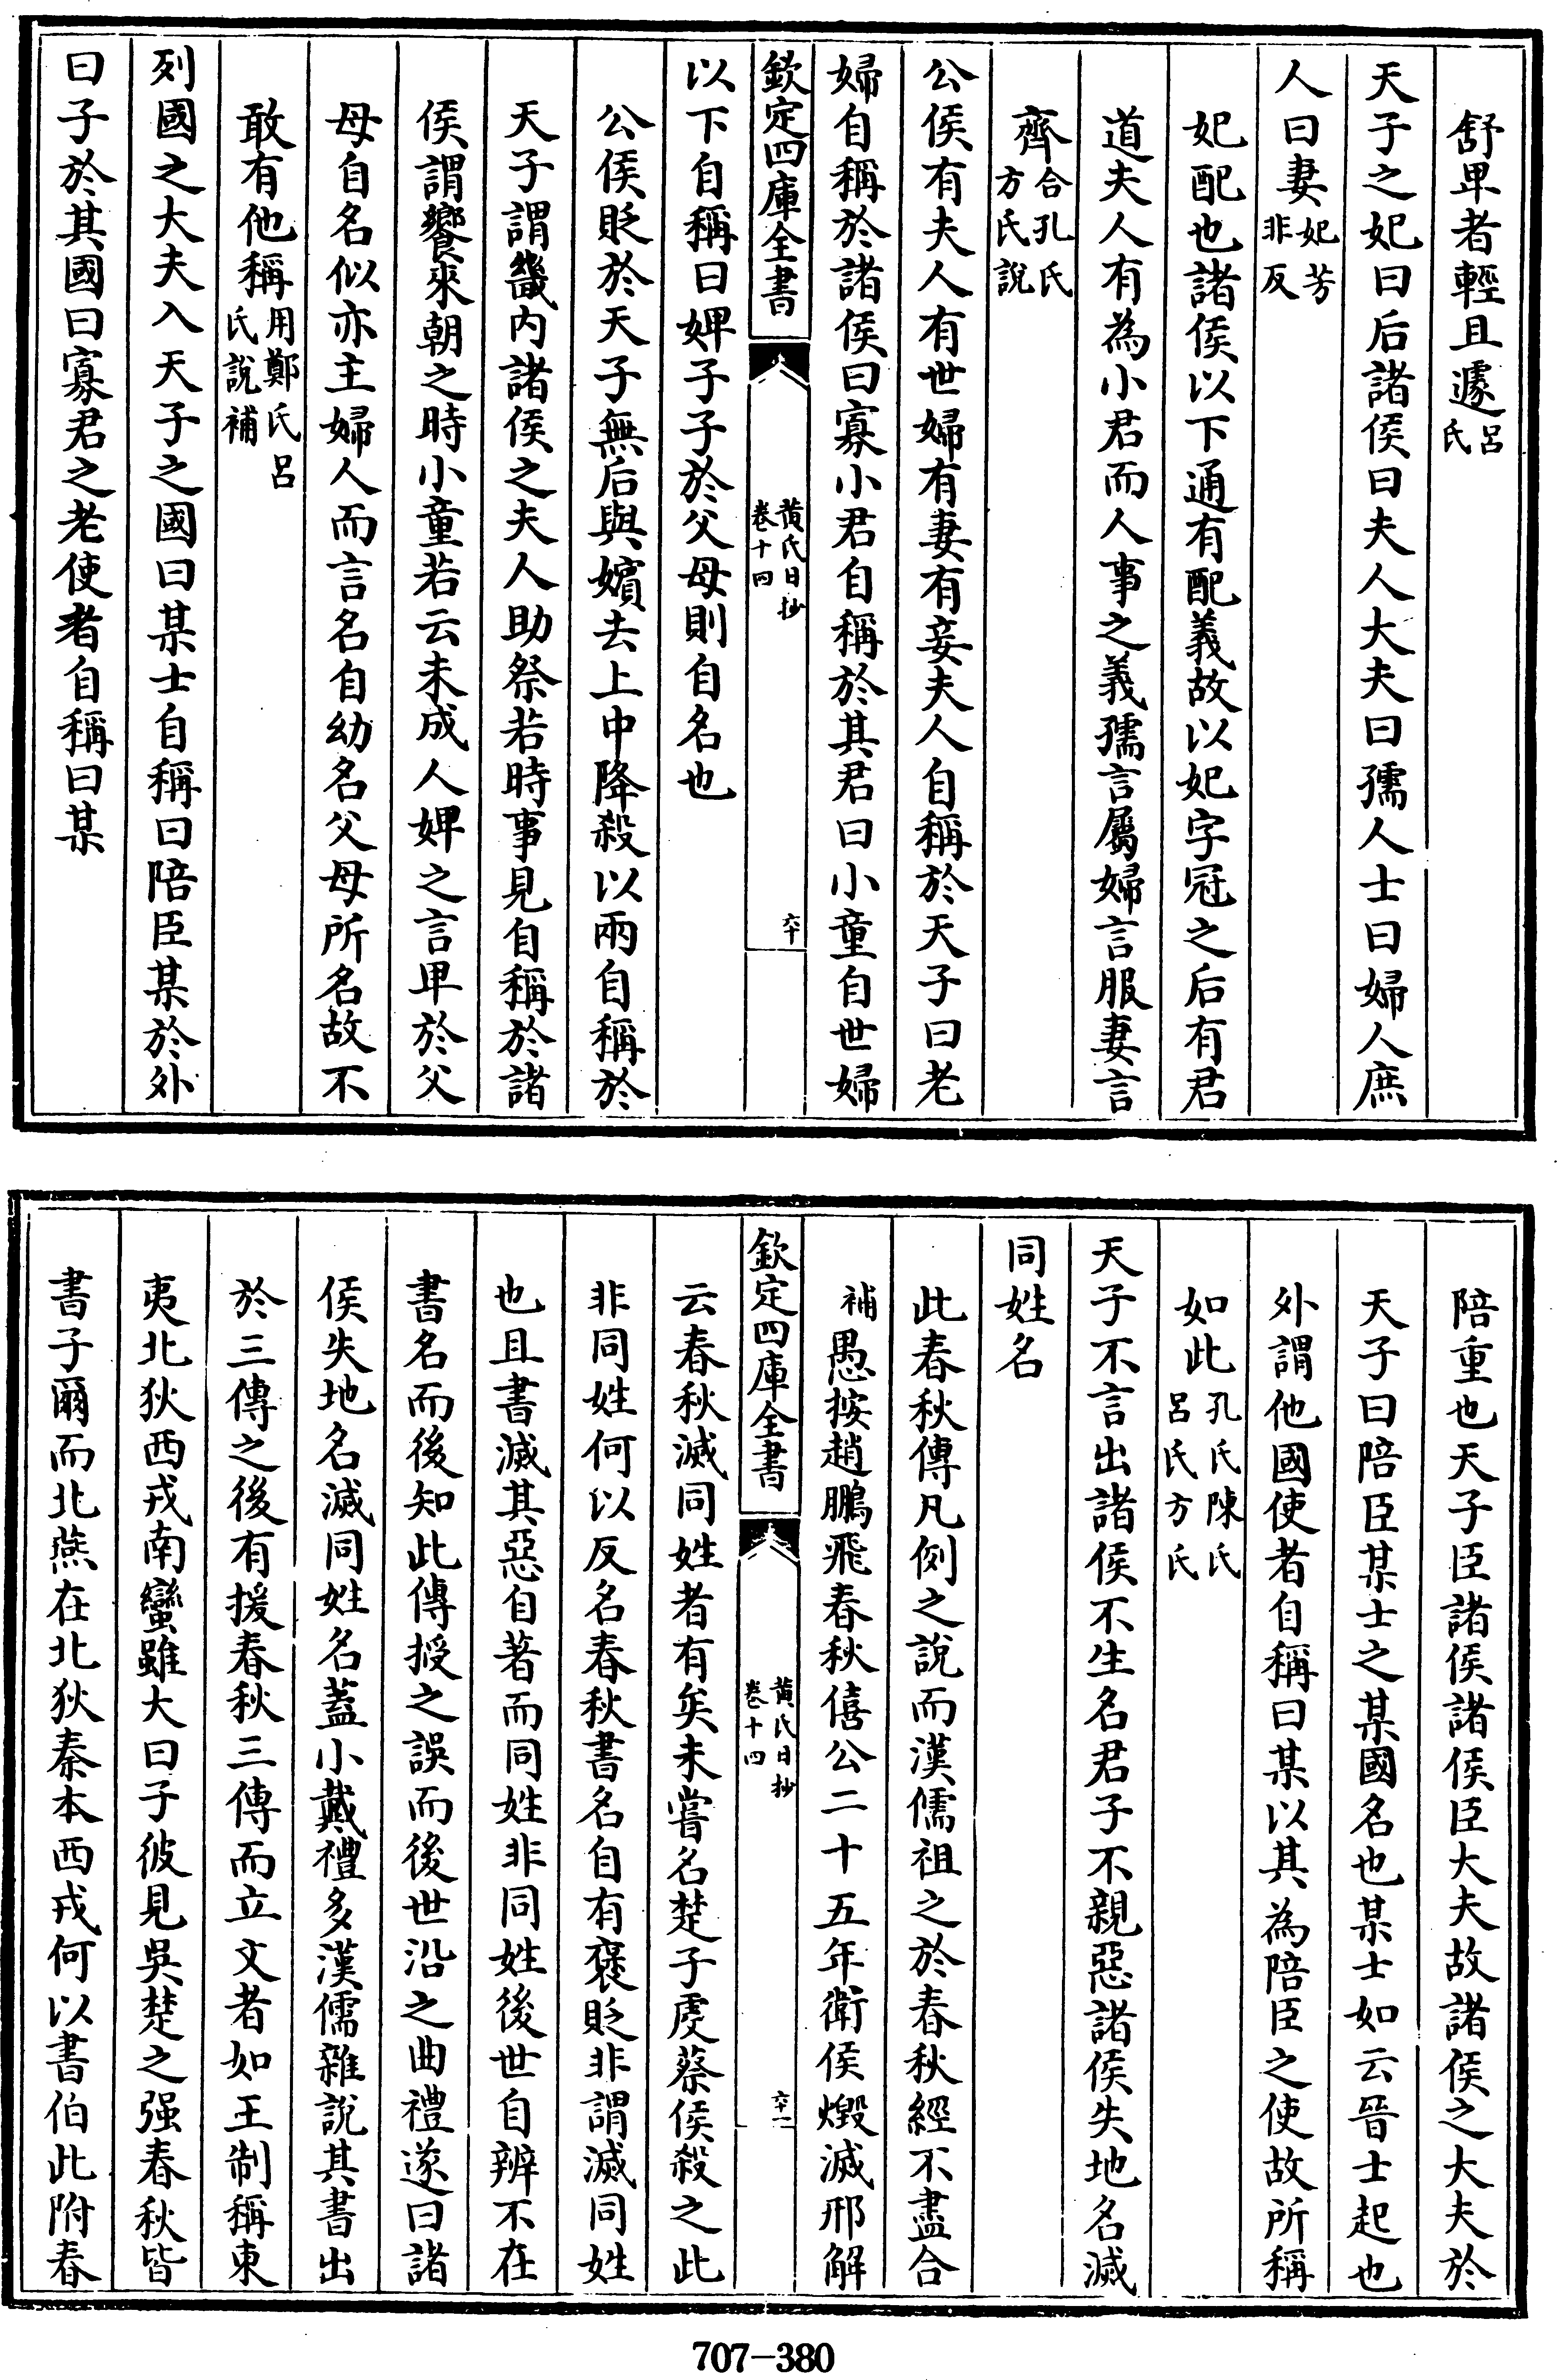 舒卑者輕且遽呂氏
天子之妃曰后諸侯曰夫人大夫曰孺人士曰婦人庶
人曰妻妃芳非反
妃配也諸侯以下通有配義故以妃字冠之后有君
道夫人有為小君而人事之義孺言屬婦言服妻言
齊合孔氏方氏說
公侯有夫人有世婦有妻有妾夫人自稱於天子曰老
婦自稱於諸侯曰寡小君自稱於其君曰小童自世婦
欽定四庫全書
黃氏日抄
卷十四
六十
以下自稱曰婢子子於父母則自名也
公侯貶於天子無后與嬪去上中降殺以兩自稱於
天子謂畿內諸侯之夫人助祭若時事見自稱於諸
侯謂饗來朝之時小童若云未成人婢之言卑於父
母自名似亦主婦人而言名自幼名父母所名故不
敢有他稱用鄭氏呂氏說補
列國之大夫入天子之國曰某士自稱曰陪臣某於外
曰子於其國曰寡君之老使者自稱曰某
陪重也天子臣諸侯諸侯臣大夫故諸侯之大夫於
天子曰陪臣某士之某國名也某士如云晉士起也
外謂他國使者自稱曰某以其為陪臣之使故所稱
如此孔氏陳氏呂氏方氏
天子不言出諸侯不生名君子不親惡諸侯失地名滅
同姓名
此春秋傳凡例之說而漢儒祖之於春秋經不盡合
補愚按趙鵬飛春秋僖公二十五年衛侯燬滅邢解
欽定四庫全書
黃氏日抄
卷十四
六十一
云春秋滅同姓者有矣未嘗名楚子虔蔡侯殺之此
非同姓何以反名春秋書名自有褒貶非謂滅同姓
也且書滅其惡自著而同姓非同姓後世自辨不在
書名而後知此傳授之誤而後世沿之曲禮遂曰諸
侯失地名滅同姓名蓋小戴禮多漢儒雜說其書出
於三傳之後有援春秋三傳而立文者如王制稱東
夷北狄西戎南蠻雖大曰子彼見吳楚之强春秋皆
書子爾而北燕在北狄秦本西戎何以書伯此附春
707-380